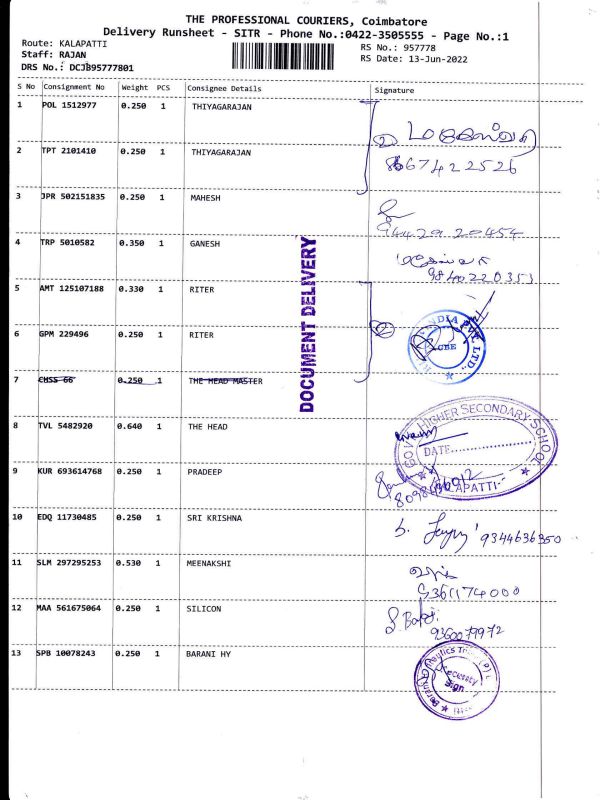 THE PROFESSIONAL COURIERS, Coimbatore
Delivery Runsheet - SITR - Phone No.:0422-3505555 - Page No.:1
Route: KALAPATTI
RS No.: 957778
Staff: RAJAN
RS Date: 13-Jun-2022
DRS No.: DCJB95777801
S No Consignment No Weight PCS Consignee Details Signature
1 POL 1512977 0.250 1 THIYAGARAJAN
2
2 TPT 2101410 0.250 1 THIYAGARAJAN
8667422526
3 JPR 502151835 0.250 1 MAHESH
9442920454
4 TRP 5010582 0.350 1 GANESH
9840220353
DOCUMENT DELIVERY
5 AMT 125107188 0.330 1 RITER
6 GPM 229496 0.250 1 RITER
2
INDIA PVT. LTD.,
CBE
7 CHSS 66 0.250 1 THE HEAD MASTER
8 TVL 5482920 0.640 1 THE HEAD
GOVT. HIGHER SECONDARY SCHOOL
DATE
KALAPATTI
9 KUR 693614768 0.250 1 PRADEEP
10 EDQ 11730485 0.250 1 SRI KRISHNA
9344636350
11 SLM 297295253 0.530 1 MEENAKSHI
9361174000
12 MAA 561675064 0.250 1 SILICON
9360079972
13 SPB 10078243 0.250 1 BARANI HY